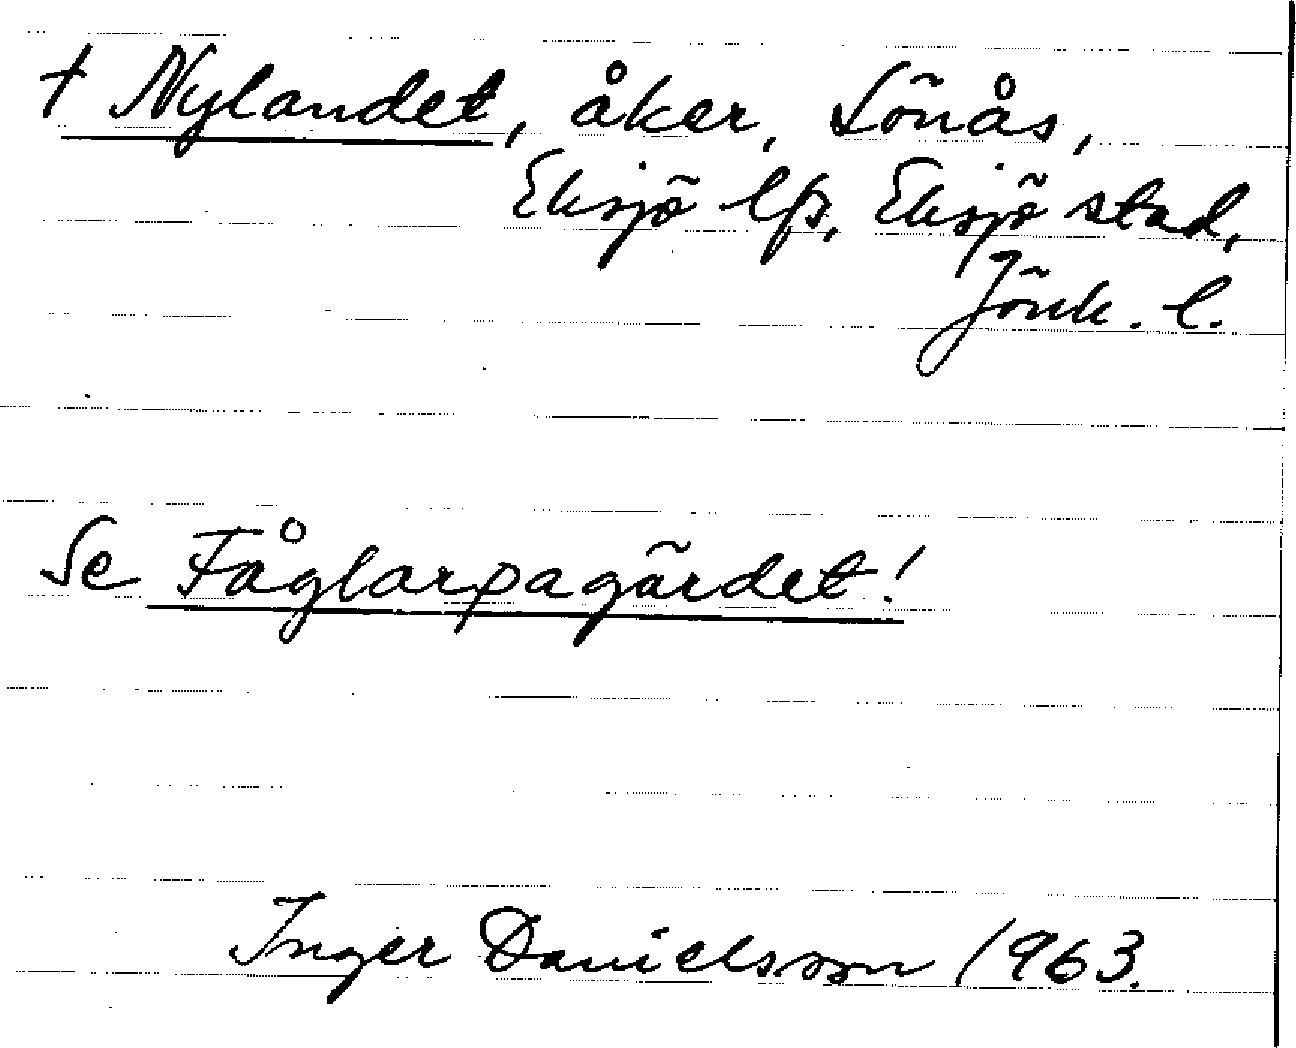 † Nylandet, åker, Lönås,
Eksjö lfs, Eksjö stad,
Jönk. l.
Se Fåglarpagärdet!
Inger Danielsson 1963.